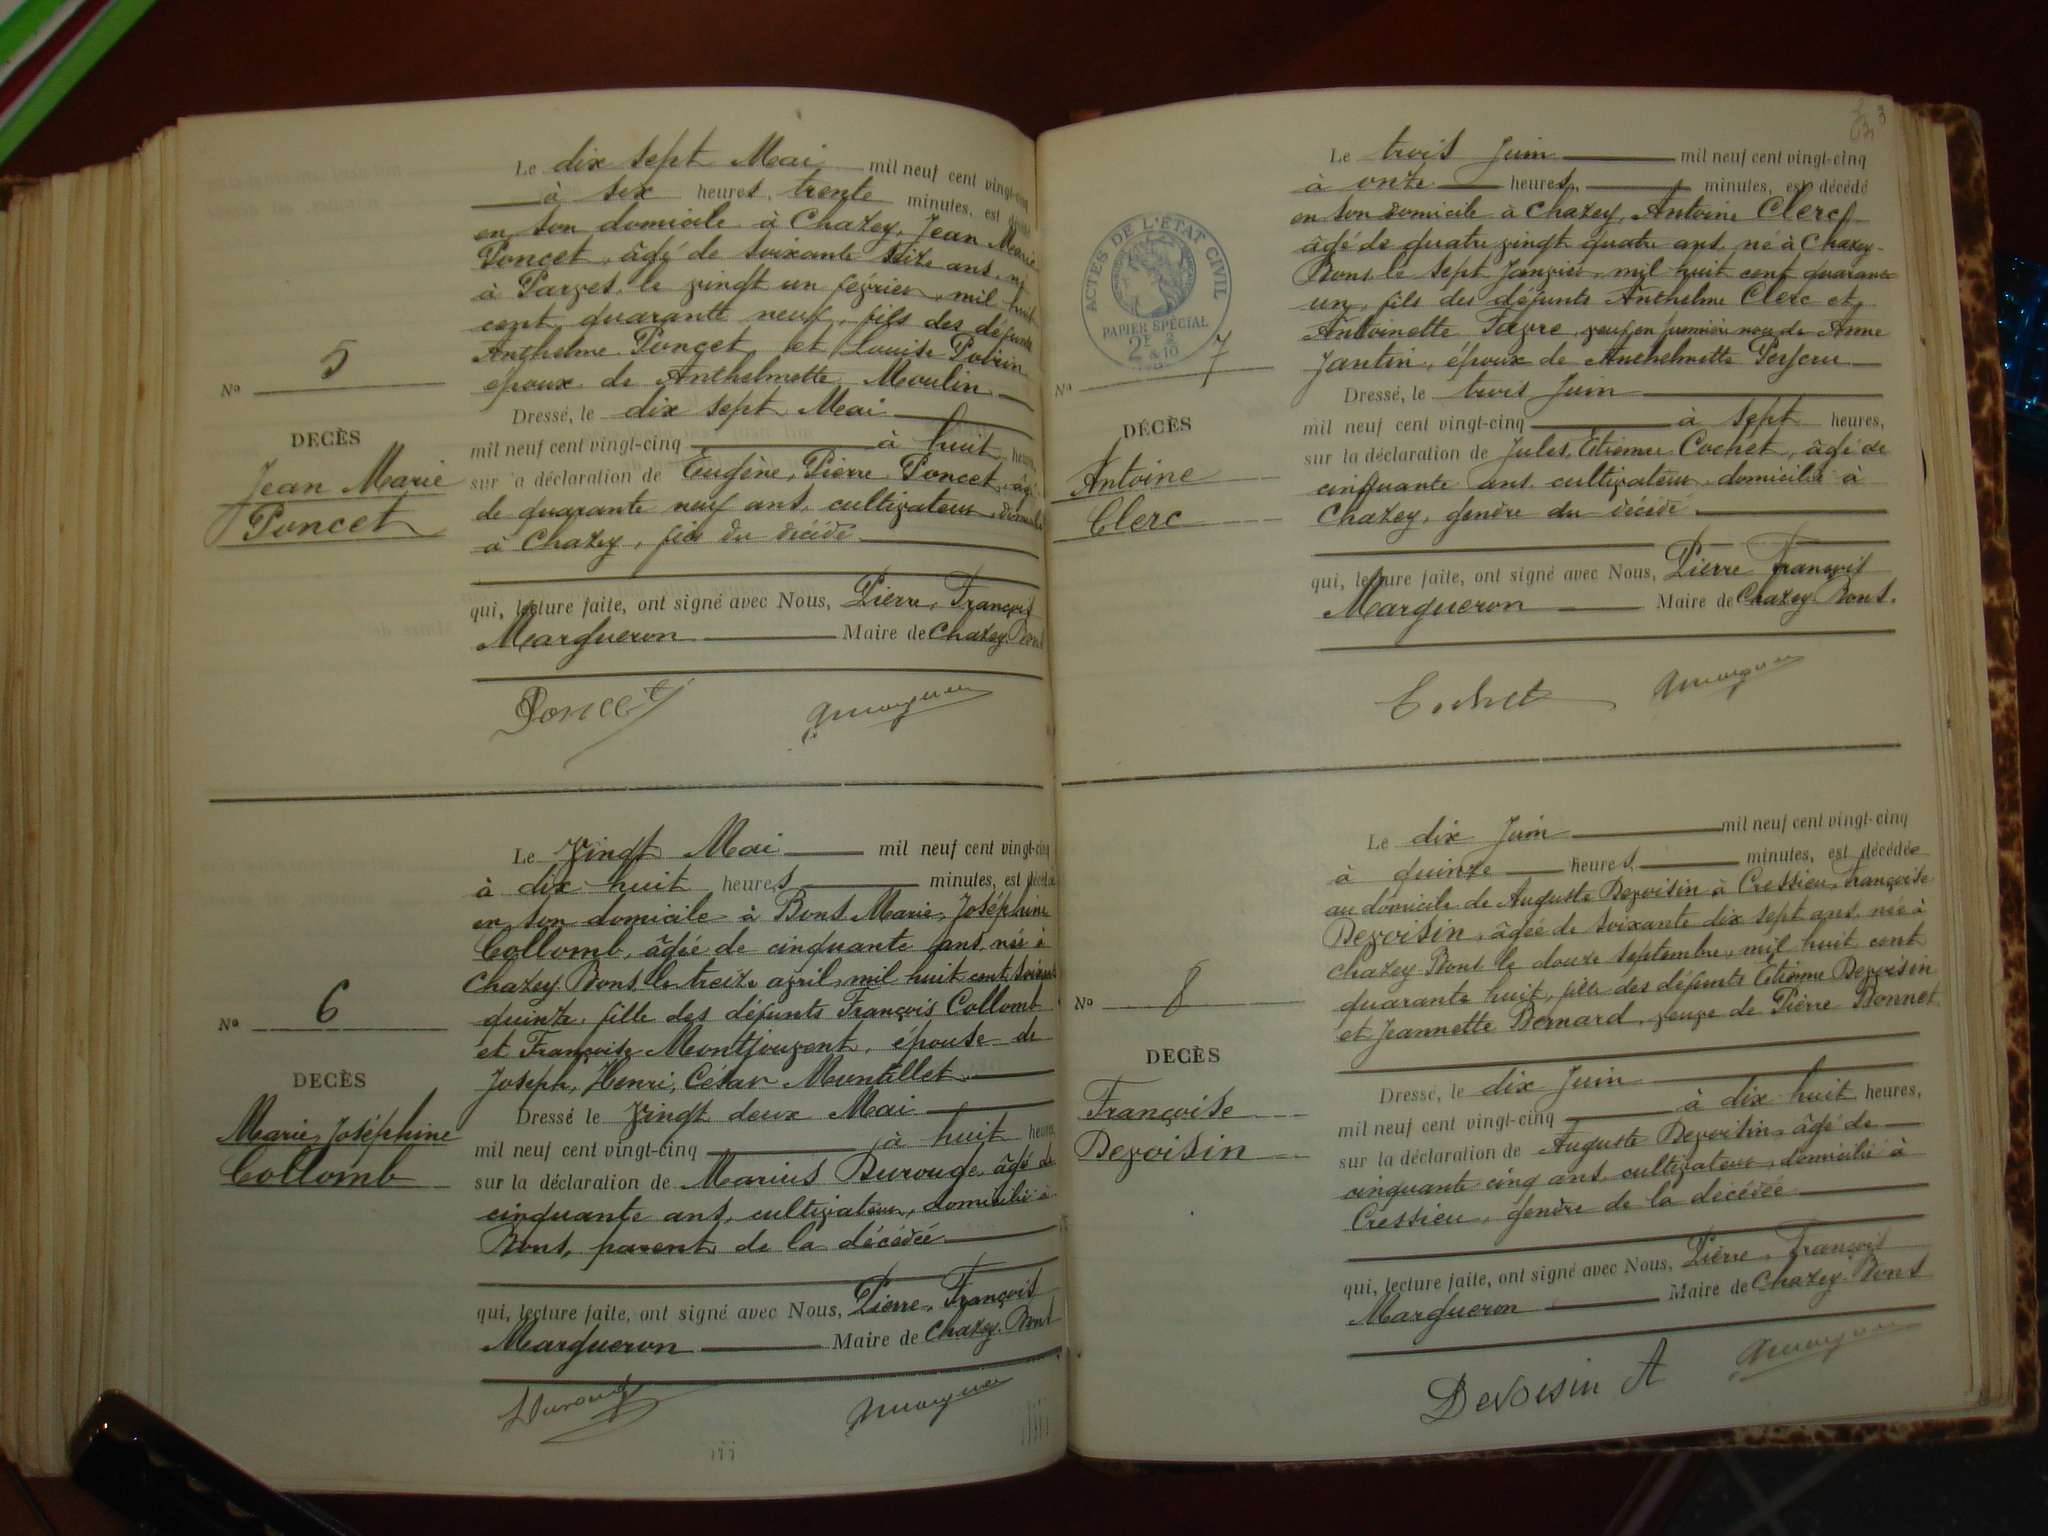 Le dix sept Mai mil neuf cent vingt-cinq
à six heures, trente minutes, est décédé
en son domicile à Chazey, Jean Marie
Poncet, âgé de soixante seize ans, né
à Parves, le vingt un février, mil huit
cent quarante neuf, fils des défunts
Anthelme Poncet et Louise
époux de Anthelmette Moulin
Dressé, le dix sept Mai
mil neuf cent vingt-cinq à huit heures,
sur la déclaration de Eugène, Pierre Poncet, âgé
de quarante neuf ans, cultivateur, domicilié
à Chazey, fils du décédé
qui, lecture faite, ont signé avec Nous, Pierre, François
Margueron Maire de Chazey-Bons
Poncet
No 5
DECÈS
Jean Marie
Poncet
Le vingt Mai mil neuf cent vingt-cinq
à dix huit heures minutes, est décédée
en son domicile à Bons Marie, Joséphine
Collomb, âgée de cinquante ans, née à
Chazey Bons le treize avril, mil huit cent soixante
quinze, fille des défunts François Collomb
et Françoise Montjouvent, épouse de
Joseph, Henri, César Montillet
Dressé le vingt deux Mai
mil neuf cent vingt-cinq à huit heures
sur la déclaration de Marius Durouge, âgé de
cinquante ans, cultivateur, domicilié à
Bons, parent de la décédée
qui, lecture faite, ont signé avec Nous, Pierre, François
Margueron Maire de Chazey-Bons
No 6
DECÈS
Marie, Joséphine
Collomb
3
Le trois Juin mil neuf cent vingt-cinq
à onze heures, minutes, est décédé
en son domicile à Chazey, Antoine Clerc
âgé de quatre vingt quatre ans, né à Chazey-
Bons le sept Janvier, mil huit cent quarante
un, fils des défunts Anthelme Clerc et
Antoinette Favre, veuf en premières noces de Anne
Jantin, époux de Anthelmette
Dressé, le trois Juin
mil neuf cent vingt-cinq à sept heures,
sur la déclaration de Jules, Etienne Cochet, âgé de
cinquante ans, cultivateur, domicilié à
Chazey, gendre du décédé
qui, lecture faite, ont signé avec Nous, Pierre François
Margueron Maire de Chazey Bons.
Cochet
ACTES DE L'ÉTAT CIVIL
PAPIER SPÉCIAL
2F & 2/10
No 7
DÉCÈS
Antoine
Clerc
Le dix Juin mil neuf cent vingt-cinq
à quinze heures minutes, est décédée
au domicile de Auguste Devoisin à Cressieu, Françoise
Devoisin, âgée de soixante dix sept ans, née à
Chazey Bons le douze septembre, mil huit cent
quarante huit, fille des défunts Etienne Devoisin
et Jeannette Bernard, veuve de Pierre Bonnet
Dressé, le dix Juin
mil neuf cent vingt-cinq à dix huit heures,
sur la déclaration de Auguste Devoisin, âgé de
cinquante cinq ans, cultivateur, domicilié à
Cressieu, gendre de la décédée
qui, lecture faite, ont signé avec Nous, Pierre, François
Margueron Maire de Chazey Bons
Devoisin A
No 8
DECÈS
Françoise
Devoisin